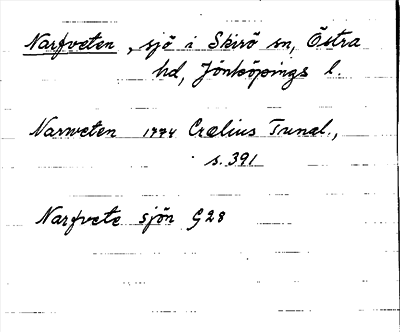 Narfveten, sjö i Skirö sn, Östra
hd, Jönköpings l.
Narweten 1774 Crælius Tunal.,
s. 391
Narfvete sjön G28